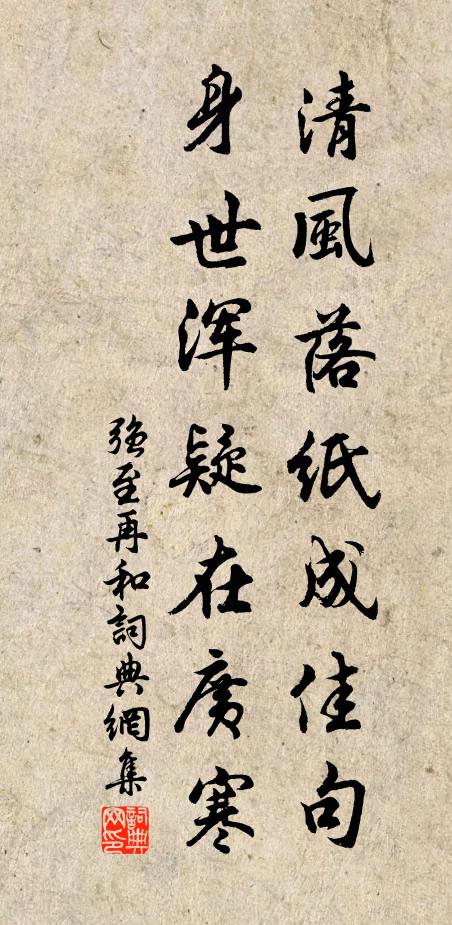 清風落紙成佳句
身世渾疑在廣寒
強至再和詞典網集
詞典網印